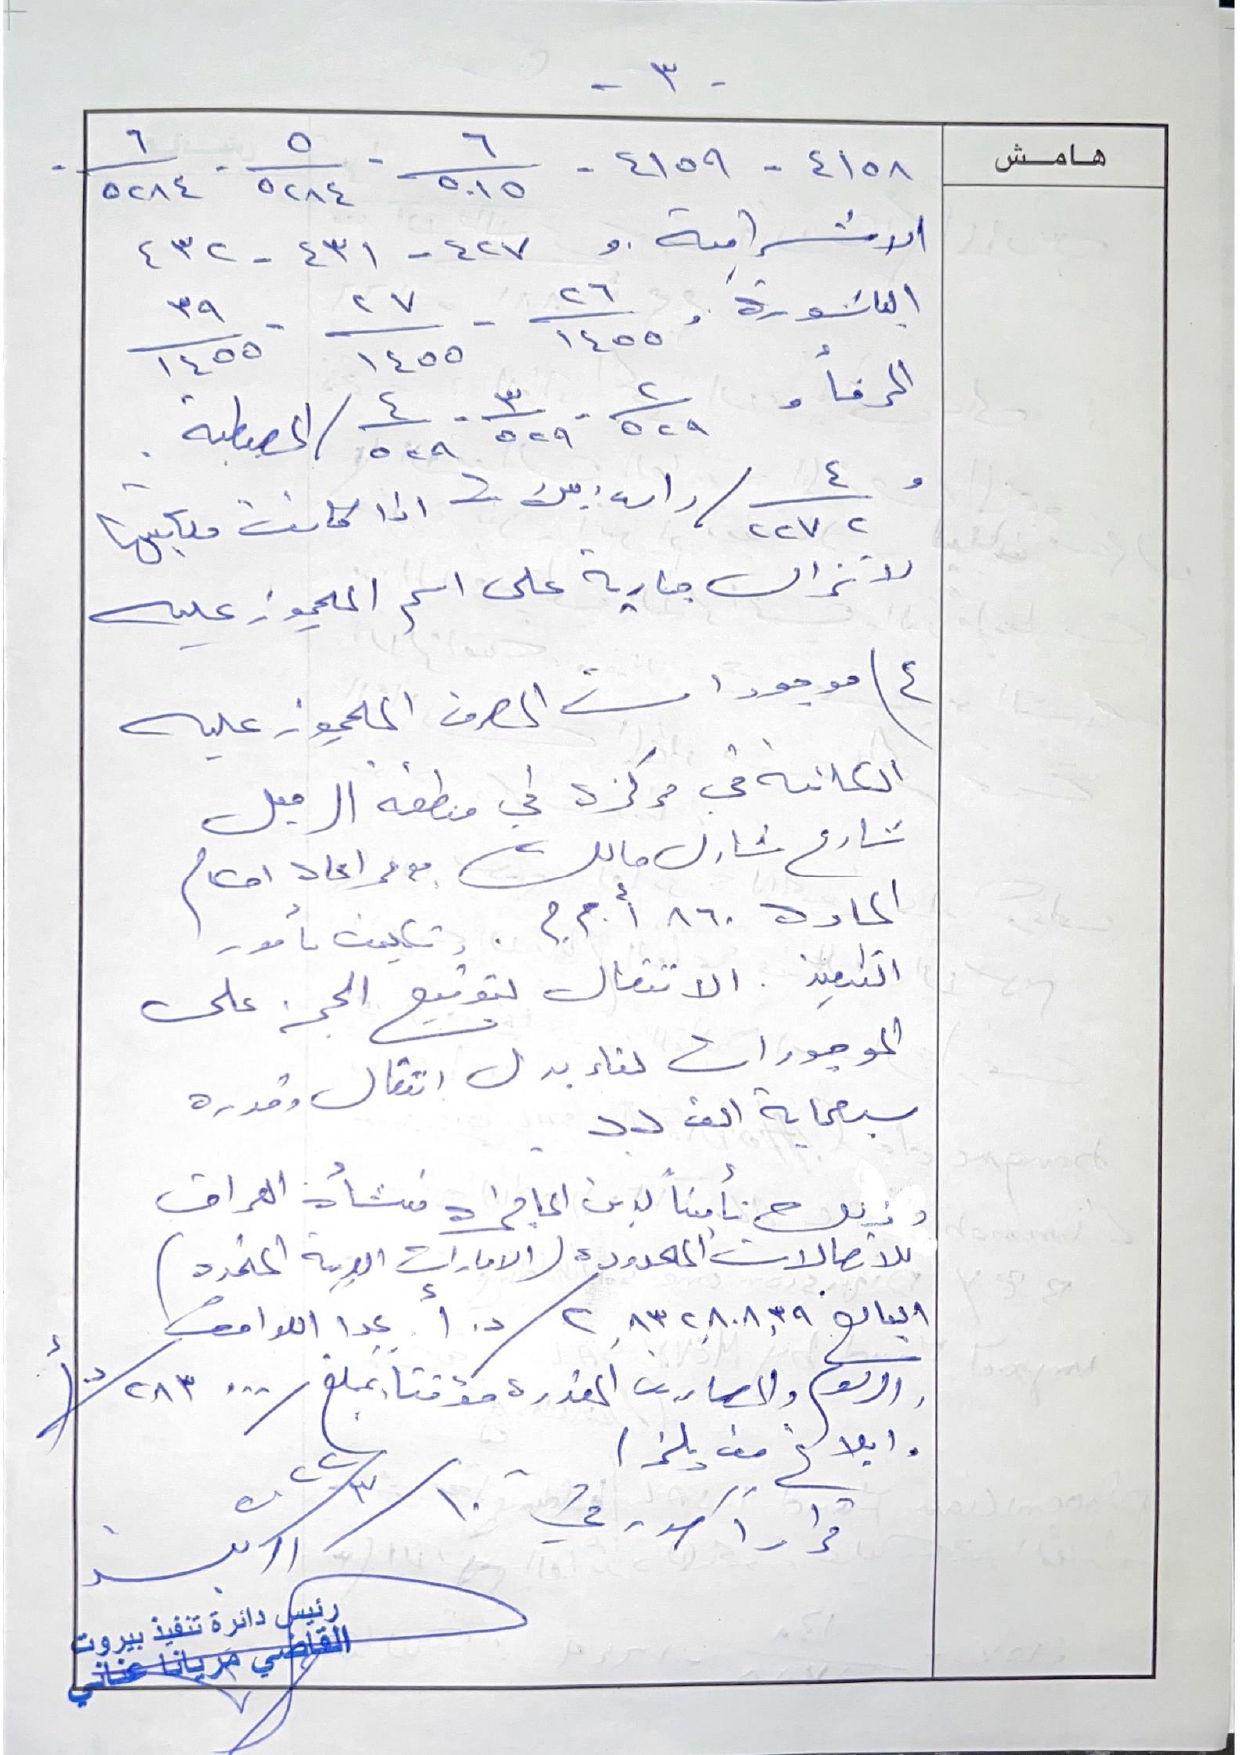 - ٣ -
هامش
٤١٥٨ - ٤١٥٩ - ٦/٥٠١٥ - ٥/٥٢٨٤ - ٦/٥٢٨٤ -
الاشرفية. و ٤٢٧ - ٤٣١ - ٤٣٢
الباشورة و ٢٦/١٤٥٥ - ٢٧/١٤٥٥ - ٣٩/١٤٥٥
المرفأ و ٢/٥٢٩ - ٣/٥٢٩ - ٤/٥٢٩ / المصيطبة.
و ٤/٢٢٧٢ / راس بيروت اذا كانت ملكيتها
لا تزال جارية على اسم المحجوز عليه
٤) موجودات المصرف المحجوز عليه
الكائنة في مركزه في منطقة الرميل
شارع شارل مالك مع مراعاة احكام
المادة ٨٦٠ أ.م.م. وتكليف مأمور
التنفيذ الانتقال لتوقيع الحجز على
الموجودات لقاء بدل انتقال وقدره
سبعماية الف ل.ل
وذلك تأميناً لدين الحاجزة منشأة العراق
للاتصالات المحدودة (الامارات العربية المتحدة)
البالغ ٢,٨٣٢,٨٠٨,٣٩ / د.أ عدا اللواحق
والرسوم والمصاريف المقدرة مؤقتاً بمبلغ / ٢٨٣٠٠٠ / د.أ
وابلاغ من يلزم
قراراً صدر في ١٠/٣/٢٠٢٢
الرئيسة
رئيس دائرة تنفيذ بيروت
القاضي مريانا عناني